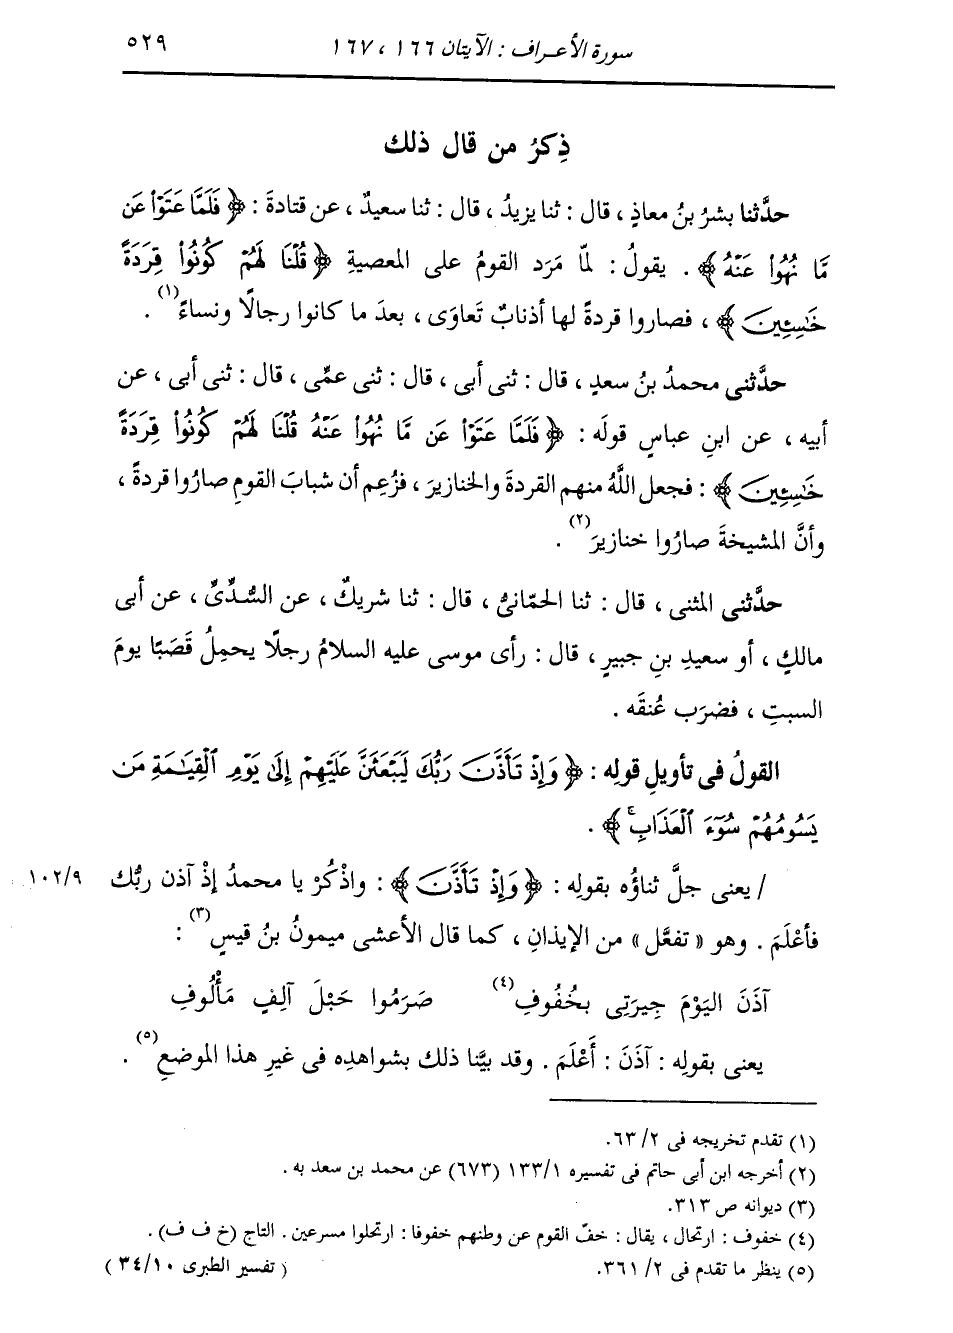 سورة الأعراف : الآيتان ١٦٦ ، ١٦٧ ٥٢٩
ذِكرُ من قال ذلك
حدَّثنا بشرُ بنُ معاذٍ ، قال : ثنا يزيدُ ، قال : ثنا سعيدٌ ، عن قتادةَ : ﴿ فَلَمَّا عَتَوْا۟ عَن
مَّا نُهُوا۟ عَنْهُ ﴾ . يقولُ : لمّا مَرَد القومُ على المعصيةِ ﴿ قُلْنَا لَهُمْ كُونُوا۟ قِرَدَةً
خَـٰسِـِٔينَ ﴾ ، فصاروا قردةً لها أذنابٌ تَعاوَى ، بعدَ ما كانوا رجالًا ونساءً(١) .
حدَّثنى محمدُ بنُ سعدٍ ، قال : ثنى أبى ، قال : ثنى عمِّى ، قال : ثنى أبى ، عن
أبيه ، عن ابنِ عباسٍ قولَه : ﴿ فَلَمَّا عَتَوْا۟ عَن مَّا نُهُوا۟ عَنْهُ قُلْنَا لَهُمْ كُونُوا۟ قِرَدَةً
خَـٰسِـِٔينَ ﴾ : فجعل اللَّهُ منهم القردةَ والخنازيرَ ، فزُعِم أن شبابَ القومِ صارُوا قردةً ،
وأنَّ المشيخةَ صارُوا خنازيرَ(٢) .
حدَّثنى المثنى ، قال : ثنا الحمّانىُّ ، قال : ثنا شريكٌ ، عن السُّدِّىِّ ، عن أبى
مالكٍ ، أو سعيدِ بنِ جبيرٍ ، قال : رأى موسى عليه السلامُ رجلًا يحمِلُ قَصَبًا يومَ
السبتِ ، فضرَب عُنقَه .
القولُ فى تأويلِ قولِه : ﴿ وَإِذْ تَأَذَّنَ رَبُّكَ لَيَبْعَثَنَّ عَلَيْهِمْ إِلَىٰ يَوْمِ ٱلْقِيَـٰمَةِ مَن
يَسُومُهُمْ سُوٓءَ ٱلْعَذَابِ ۚ ﴾ .
/ يعنى جلَّ ثناؤُه بقولِه : ﴿ وَإِذْ تَأَذَّنَ ﴾ : واذْكُرْ يا محمدُ إذْ آذن ربُّك ١٠٢/٩
فأعْلَمَ . وهو « تفعَّل » من الإيذانِ ، كما قال الأعشى ميمونُ بنُ قيسٍ(٣) :
آذَنَ اليَوْمَ جِيرَتِى بخُفُوفِ(٤) صَرَمُوا حَبْلَ آلِفٍ مَأْلُوفِ
يعنى بقولِه : آذَنَ : أَعْلَمَ . وقد بيَّنا ذلك بشواهدِه فى غيرِ هذا الموضعِ(٥) .
(١) تقدم تخريجه فى ٢/ ٦٣.
(٢) أخرجه ابن أبى حاتم فى تفسيره ١٣٣/١ (٦٧٣) عن محمد بن سعد به .
(٣) ديوانه ص ٣١٣.
(٤) خفوف : ارتحال ، يقال : خفّ القوم عن وطنهم خفوفا : ارتحلوا مسرعين . التاج (خ ف ف) .
(٥) ينظر ما تقدم فى ٢/ ٣٦١. ( تفسير الطبرى ٣٤/١٠ )